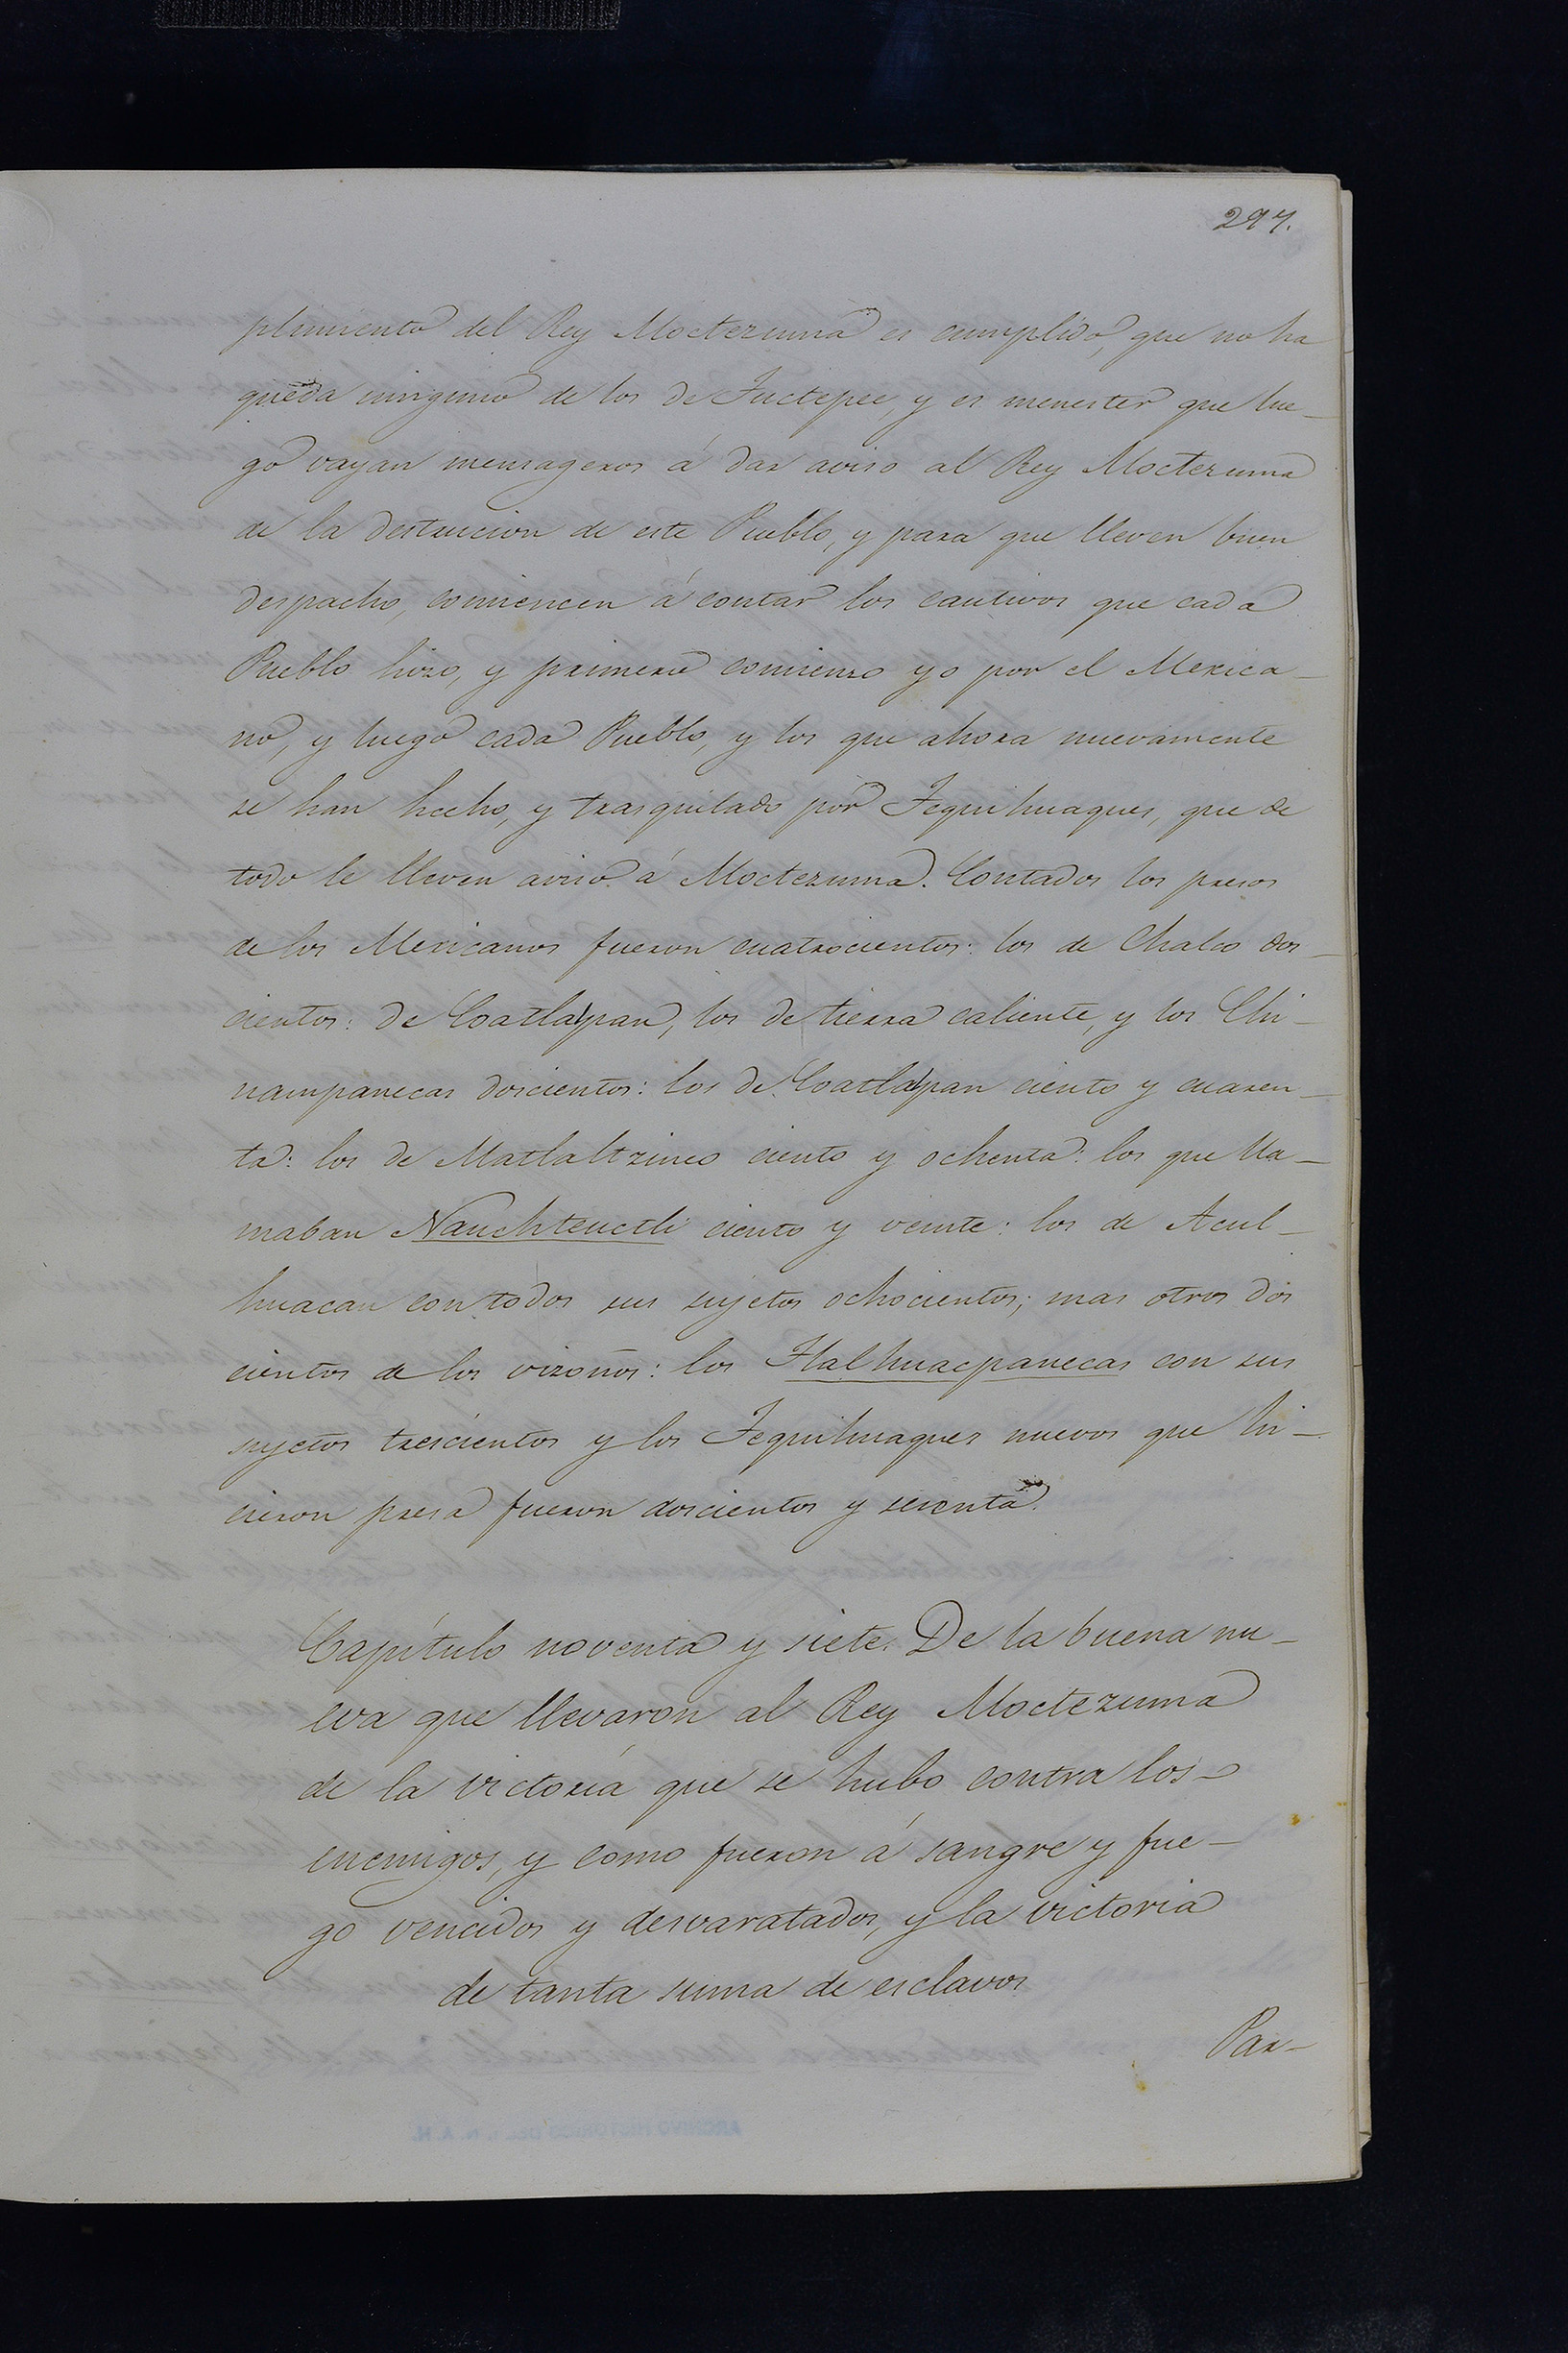 297.
plimiento del Rey Moctezuma es cumplido, que no ha
queda ninguno de los de Tuctepec, y es menester que lue_
go vayan mensageros á dar aviso al Rey Moctezuma
de la destruicion de este Pueblo, y para que lleven buen
despacho, comiencen á contar los cautivos que cada
Pueblo hizo, y primero comienzo yo por el Mexica_
no, y luego cada Pueblo, y los que ahora nuevamente
se han hecho, y trasquilado por Tequihuaques, que de
todo le lleven aviso á Moctezuma. Contados los presos
de los Mexicanos fueron cuatrocientos: los de Chalco dos_
cientos: de Coatlalpan, los de tierra caliente, y los Chi_
nampanecas doscientos: los de Coatlalpan ciento y cuaren_
ta: los de Matlaltzinco ciento y ochenta: los que lla_
maban Nauchteuctli ciento y veinte: los de Acul_
huacan con todos sus sujetos ochocientos; mas otros dos
cientos de los vizoños: los Tlalhuacpanecas con sus
sujetos trescientos y los Tequihuaques nuevos que hi_
cieron presa fueron doscientos y sesenta.
Capítulo noventa y siete. De la buena nu_
eva que llevaron al Rey Moctezuma
de la victoria que se hubo contra los_
enemigos, y como fueron á sangre y fue_
go vencidos y desvaratados, y la victoria
de tanta suma de esclavos
Par_
ARCHIVO HISTORICO DEL I. N. A. H.